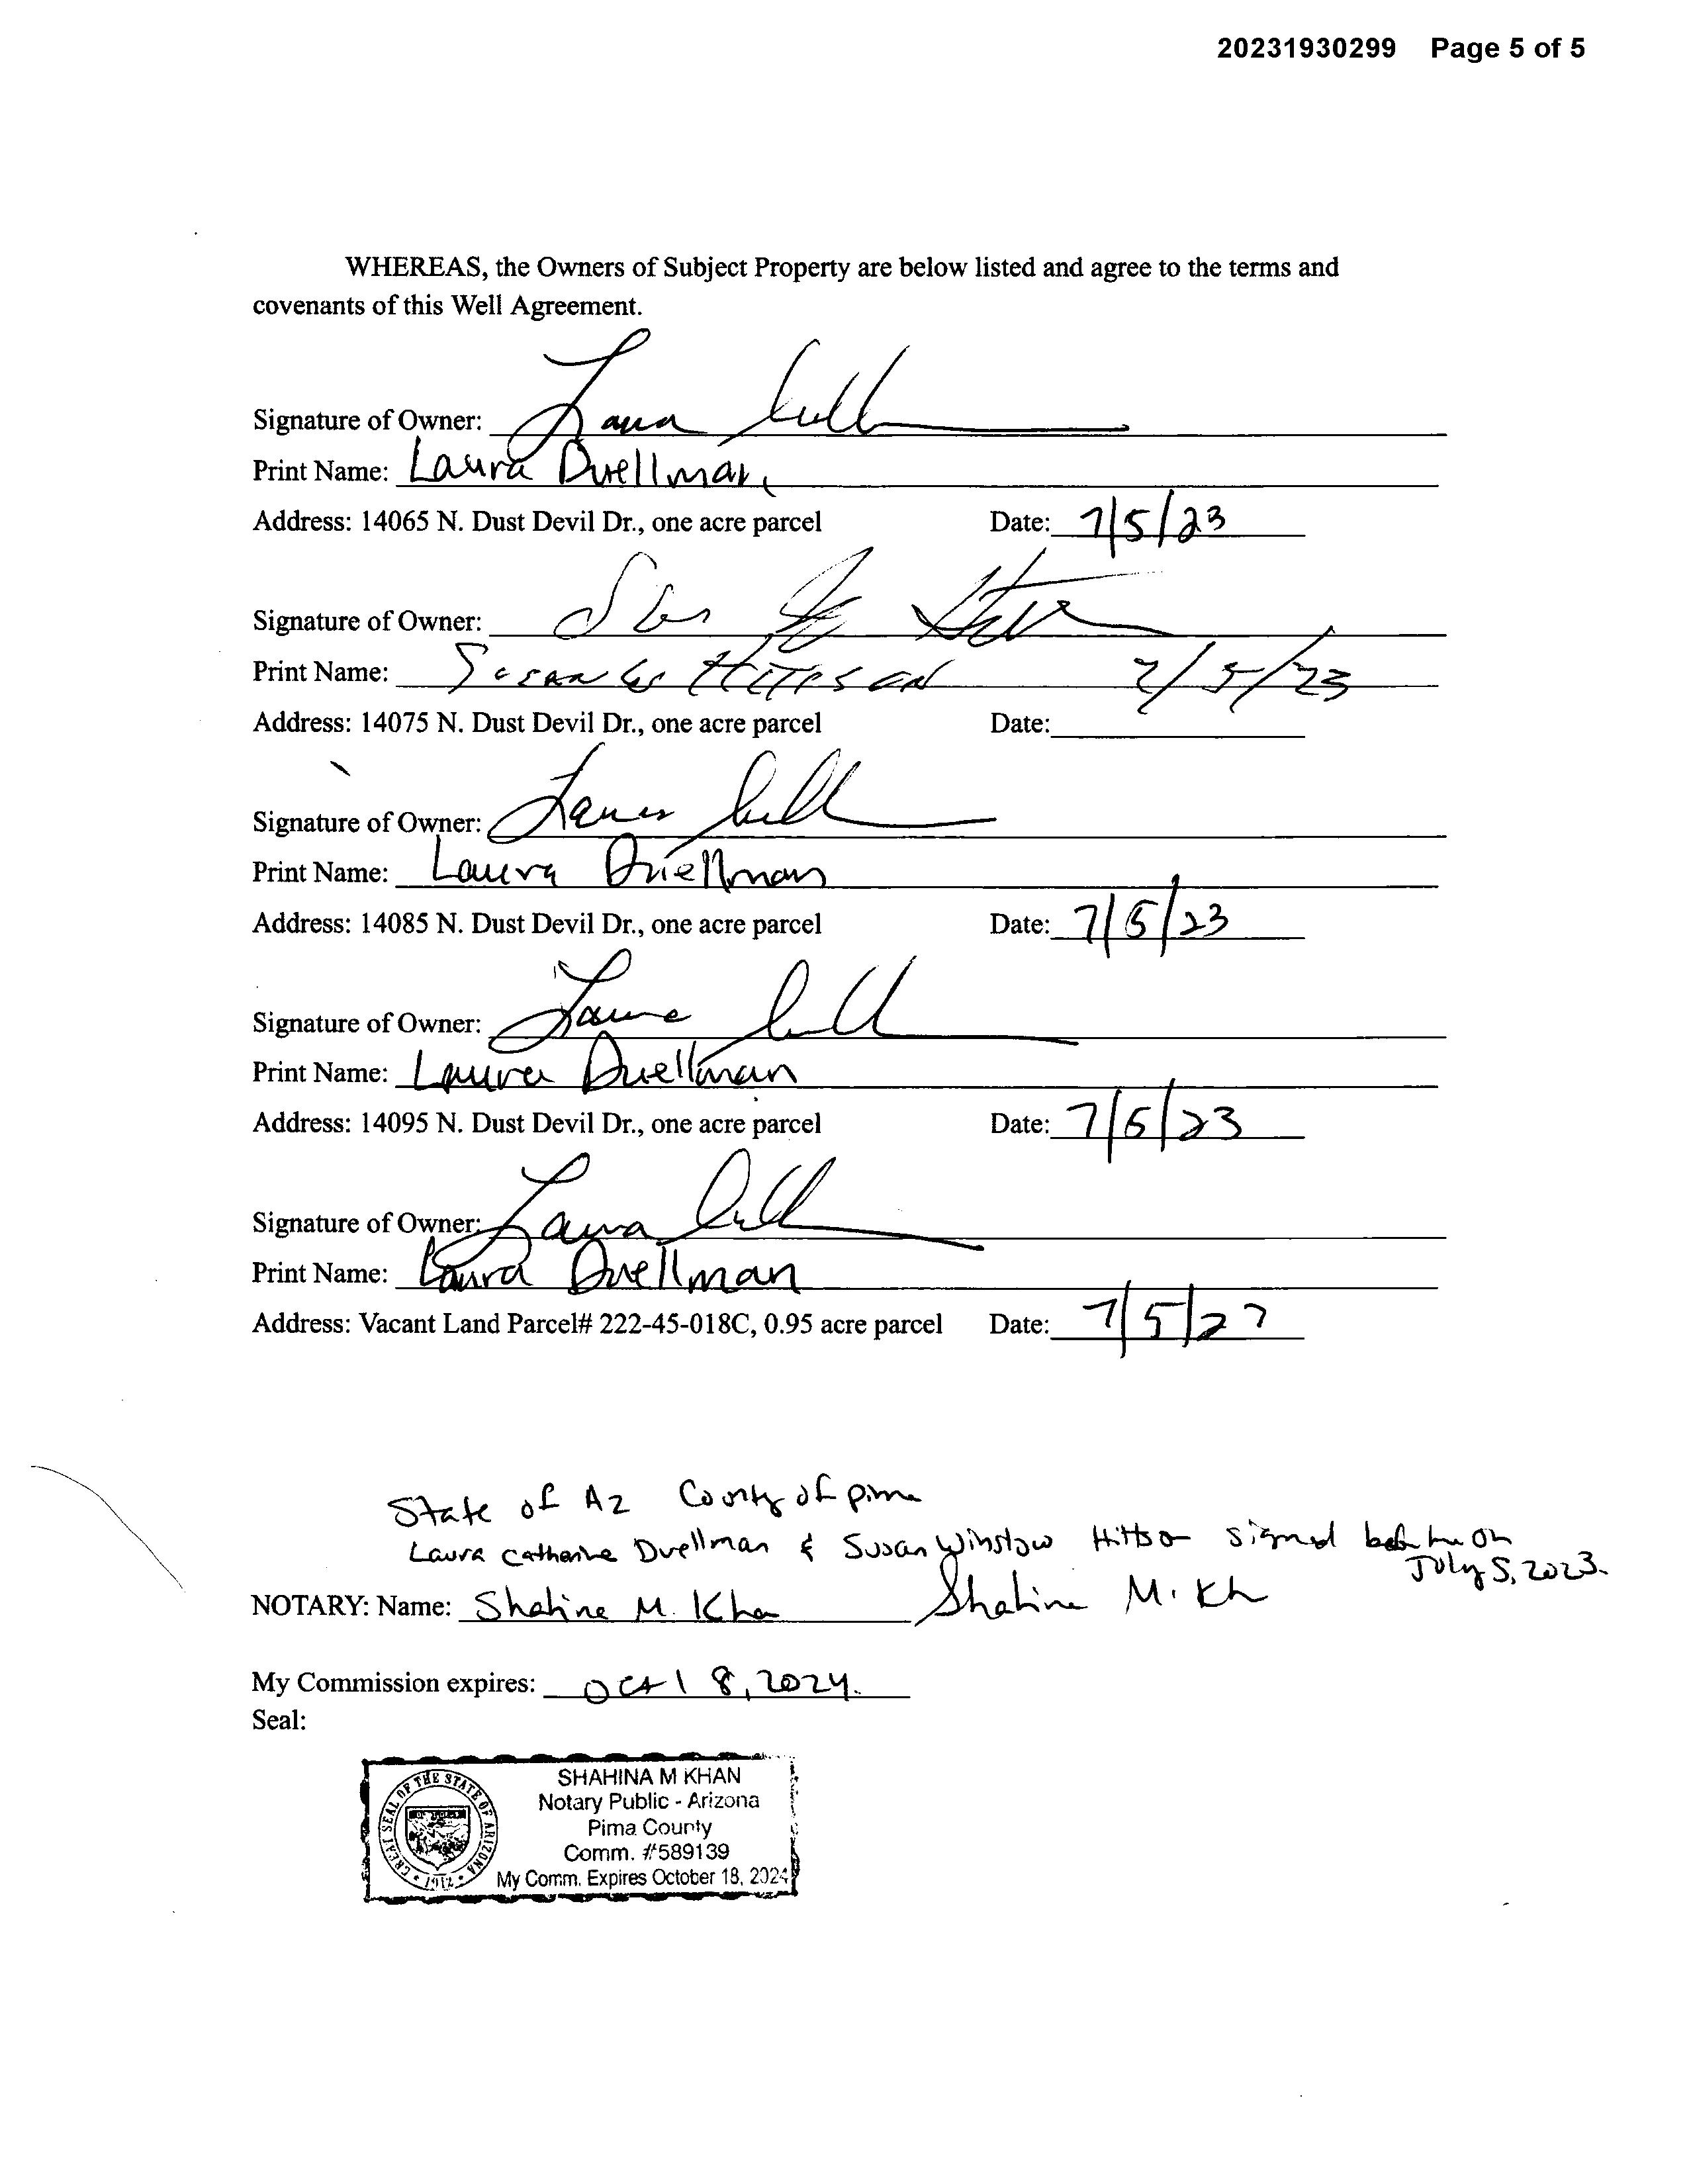 20231930299 Page 5 of 5
WHEREAS, the Owners of Subject Property are below listed and agree to the terms and
covenants of this Well Agreement.
Signature of Owner: Laura
Print Name: Laura Duellman
Address: 14065 N. Dust Devil Dr., one acre parcel Date: 7/5/23
Signature of Owner:
Print Name: Susan W Hittson 7/5/23
Address: 14075 N. Dust Devil Dr., one acre parcel Date:
Signature of Owner: Laura
Print Name: Laura Duellman
Address: 14085 N. Dust Devil Dr., one acre parcel Date: 7/5/23
Signature of Owner: Laura
Print Name: Laura Duellman
Address: 14095 N. Dust Devil Dr., one acre parcel Date: 7/5/23
Signature of Owner: Laura
Print Name: Laura Duellman
Address: Vacant Land Parcel# 222-45-018C, 0.95 acre parcel Date: 7/5/2
State of AZ County of pima
Laura Catharine Duellman & Susan Winslow Hittson signed before me on
July 5, 2023.
NOTARY: Name: Shahina M. Khan Shahina M. Kh
My Commission expires: Oct 18, 2024.
Seal:
GREAT SEAL OF THE STATE OF ARIZONA
1912
SHAHINA M KHAN
Notary Public - Arizona
Pima County
Comm. #589139
My Comm. Expires October 18, 2024